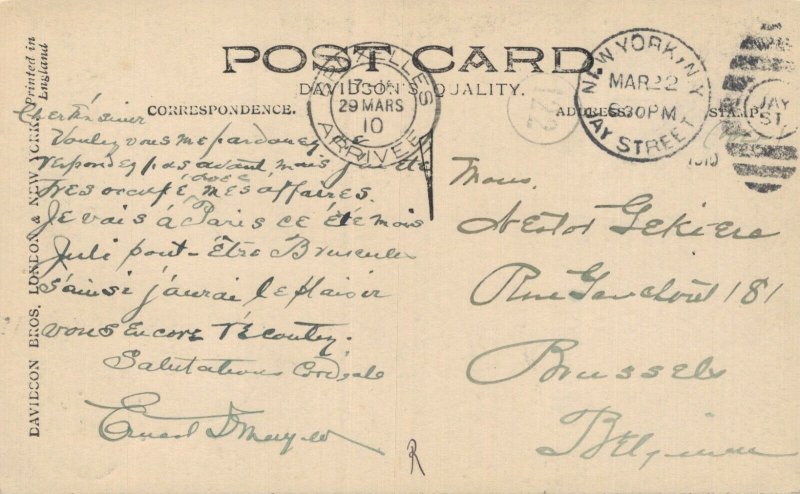 POST CARD
DAVIDSON'S QUALITY.
CORRESPONDENCE.
ADDRESS
STAMP
BRUXELLES
29 MARS
10
ARRIVEE
122
NEW YORK, N.Y.
MAR 22
630PM
JAY STREET
1910
JAY
ST.
Printed in
England
DAVIDSON BROS. LONDON & NEW YORK.
Voulez vous me pardonez
respondez pas avant mais j'ai été
très occupé avec mes affaires.
Je vais á Paris ce été mois
Juli peut-être Brussels
s'ainsi j'aurai le plaisir
vous encore l'écoutez.
Salutations Cordiale
Ernest
Mons.
Nestor Gekiere
Rue 181
Brussels
Belgium
R